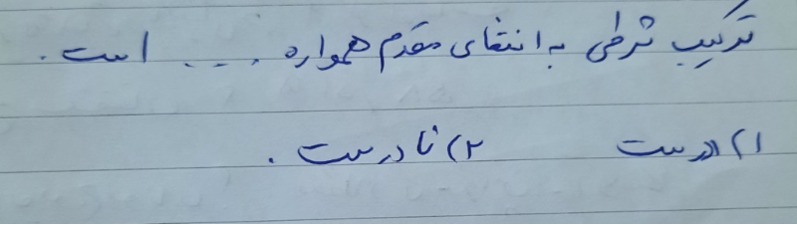 ترکیب شرطی به انتفای مقدم همواره .... است.
۱) درست ۲) نادرست.